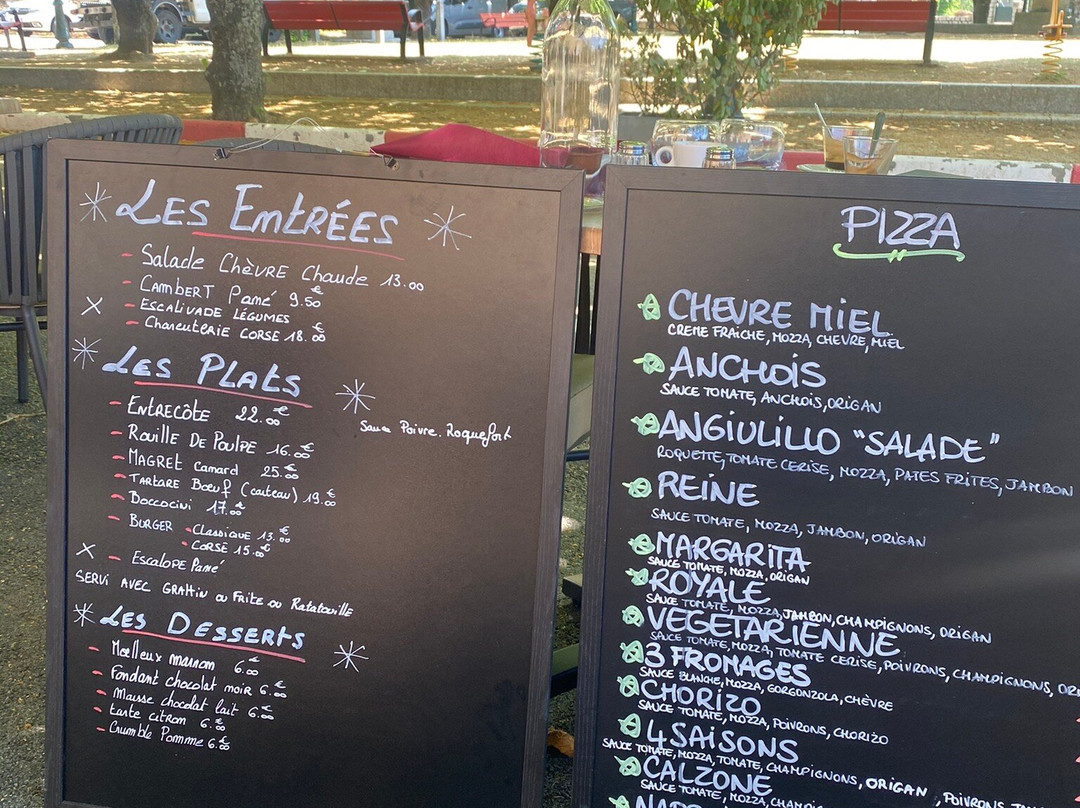 LES EntRÉES
- Salade CHÈVRE Chaude 13.00
- CAMBERT Pamé 9.50 €
- ESCALIVADE LÉGUMES
- Charcuterie CORSE 18.00 €
LES PLAtS
- ENTRECÔTE 22.00 €
Sauce Poivre. Roquefort
- ROUILLE DE POULPE 16.00 €
- MAGRET Camard 25.00 €
- TARTARE BœUf (couteau) 19.00 €
- Boccocini 17.00 €
- BURGER - CLASSIQUE 13.00 €
- CORSE 15.00 €
- ESCALOPE Pamé
SERVI AVEC GRAttin ou FRITE ou RATATOUILLE
LES DESSERtS
- Moelleux marron 6.00 €
- Fondant chocolat noir 6.00 €
- Mausse chocolat lait 6.00 €
- tarte citron 6.00 €
- Crumble Pomme 6.00 €
PIZZA
CHEVRE MIEL
CREME FRAICHE, MOZZA, CHEVRE, MIEL
ANCHOIS
SAUCE TOMATE, ANCHOIS, ORIGAN
ANGIULILLO "SALADE"
ROQUETTE, TOMATE CERISE, MOZZA, PATES FRITES, JAMBON
REINE
SAUCE TOMATE, MOZZA, JAMBON, ORIGAN
MARGARITA
SAUCE TOMATE, MOZZA, ORIGAN
ROYALE
SAUCE TOMATE, MOZZA, JAMBON, CHAMPIGNONS, ORIGAN
VEGETARIENNE
SAUCE TOMATE, MOZZA, TOMATE CERISE, POIVRONS, CHAMPIGNONS,
3 FROMAGES
SAUCE BLANCHE, MOZZA, GORGONZOLA, CHÈVRE
CHORIZO
SAUCE TOMATE, MOZZA, POIVRONS, CHORIZO
4 SAISONS
SAUCE TOMATE, MOZZA, TOMATE, CHAMPIGNONS, ORIGAN, POIVRONS,
CALZONE
SAUCE TOMATE, MOZZA,